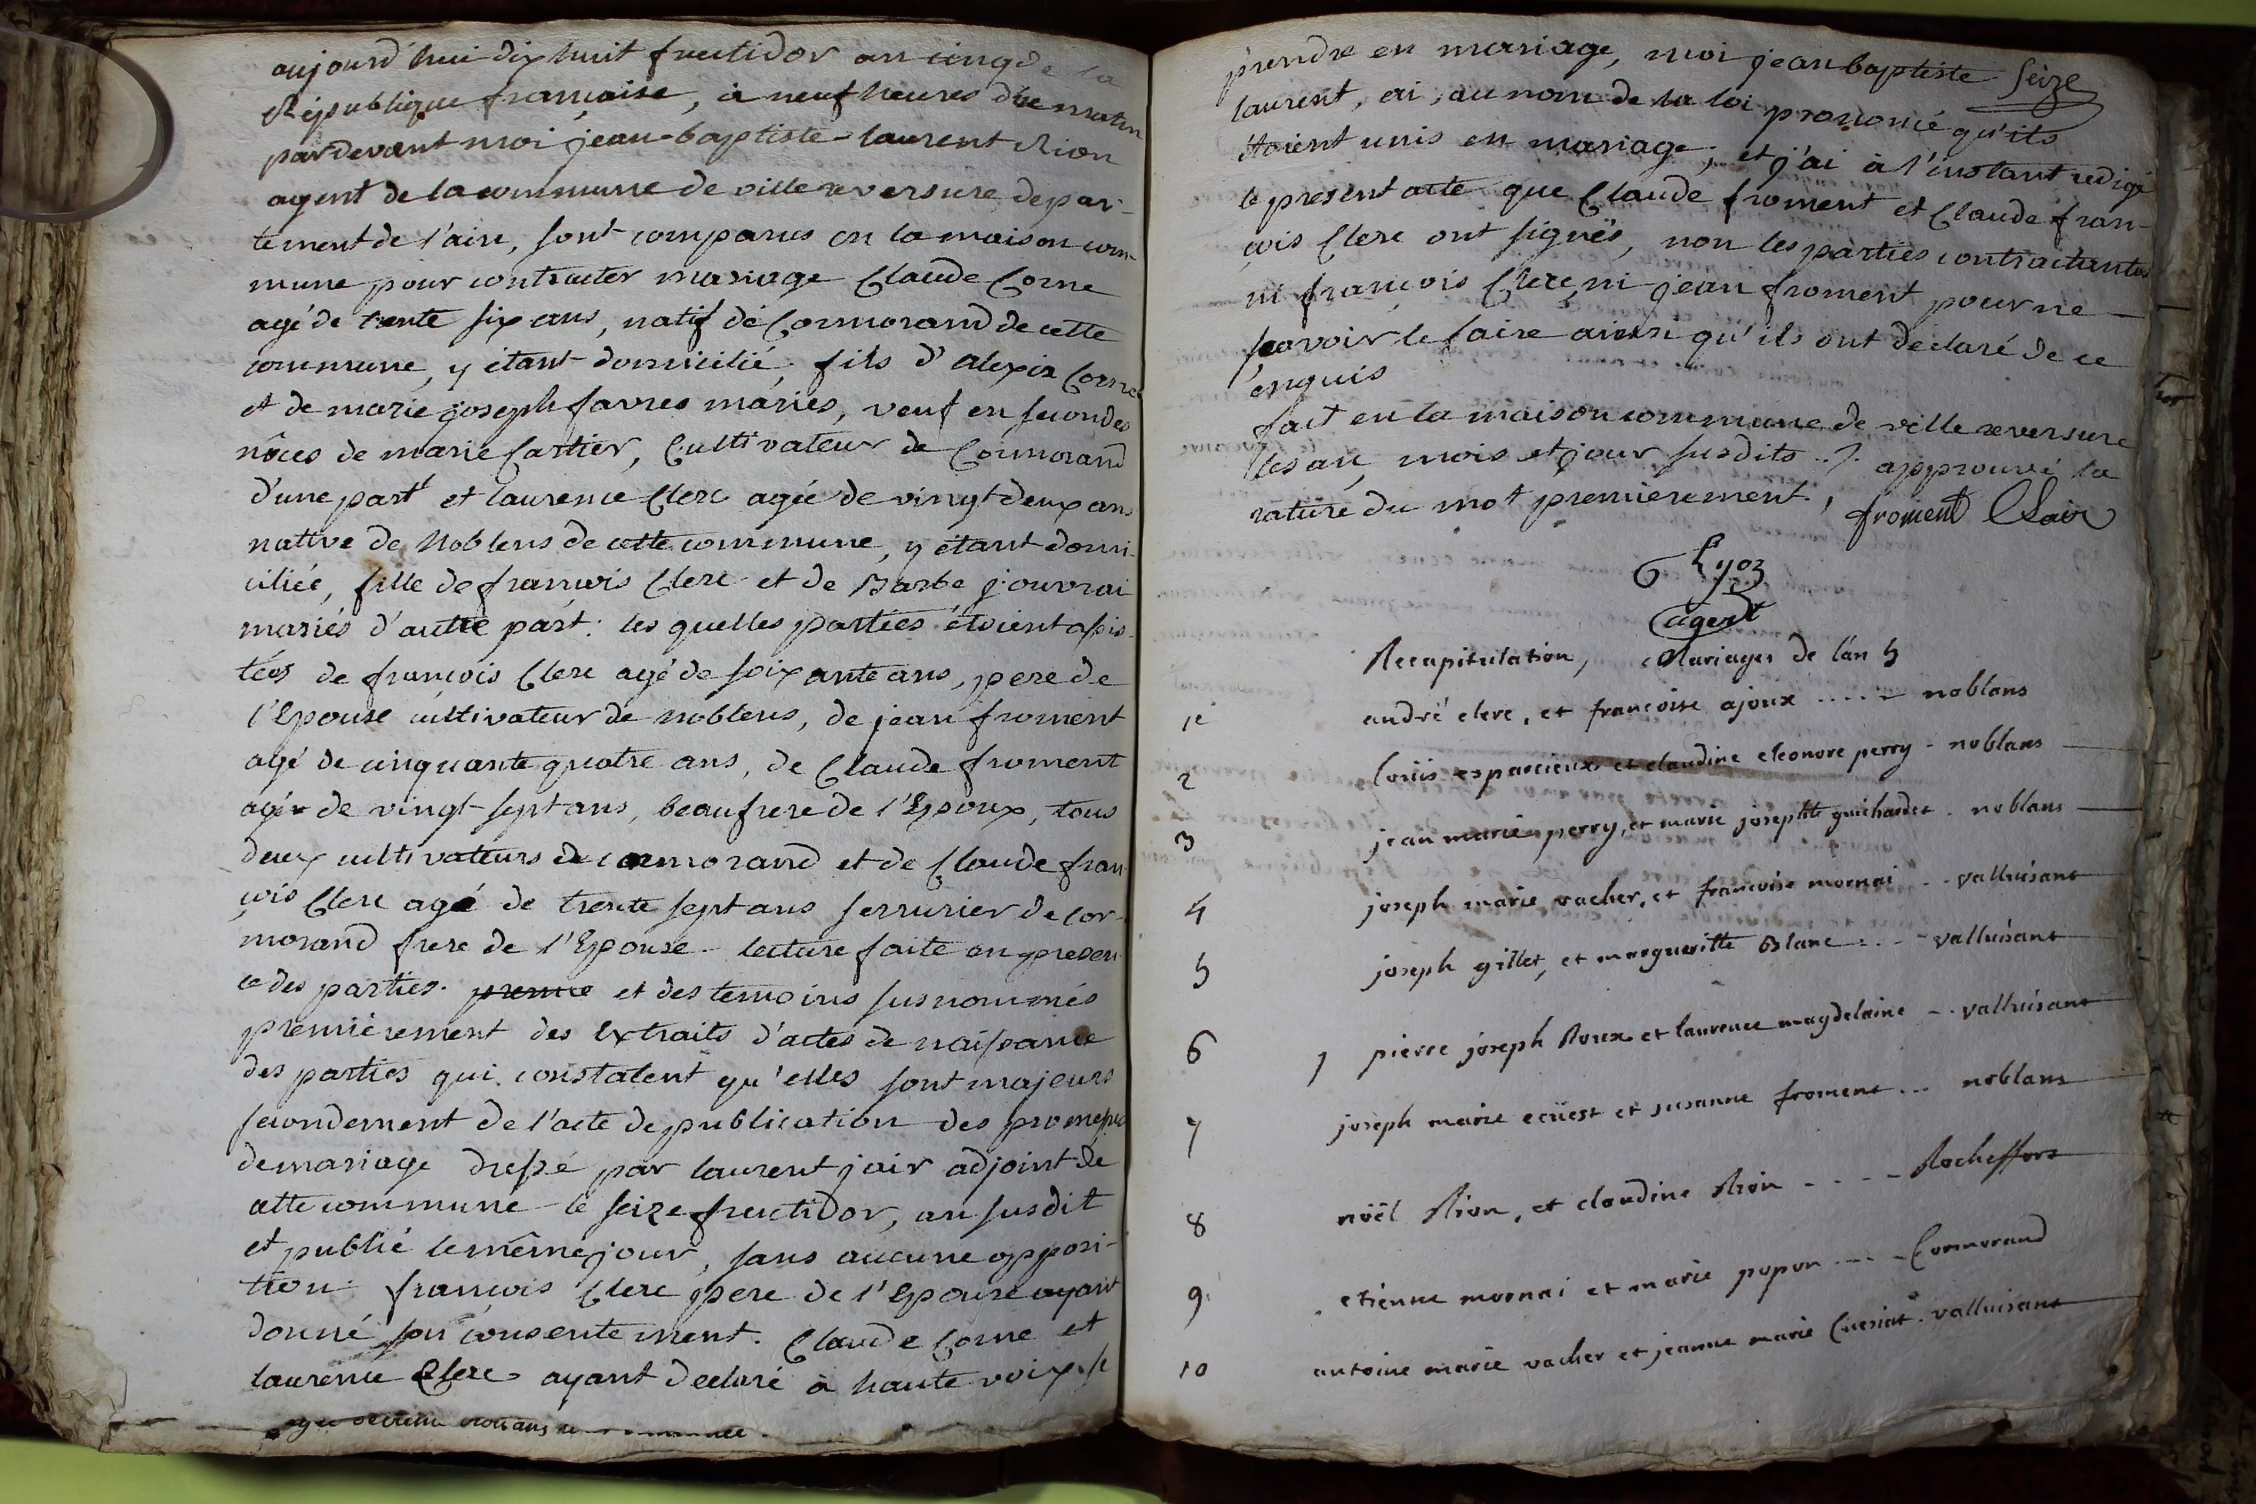 aujourd'hui dix huit fructidor an cinq de la
République française, à neuf heures due matin
pardevant moi jean-baptiste-laurent Rion
agent de la commune de villereversure, depar-
tement de l'ain, sont comparus en la maison com-
mune pour contracter mariage Claude Corne
agé de trente six ans, natif de Cormorand de cette
commune, y étant domicilié, fils d'alexis Corne
et de marie joseph favres mariés, veuf en secondes
nôces de marie Cartier, Cultivateur de Cormorand
d'une part et laurence Clerc agée de vingt deux ans
native de Noblens de cette commune, y étant domi-
ciliée, fille de françois Clerc et de Barbe jouvrai
mariés d'autre part: les quelles parties étoient assis-
tées de françois Clerc agé de soixante ans, pere de
l'Epouse cultivateur de noblens, de jean froment
agé de cinquante quatre ans, de Claude froment
agé de vingt-sept ans, beaufrere de l'Epoux, tous
deux cultivateurs de cormorand et de Claude fran-
çois Clerc agé de trente sept ans serrurier de Cor-
morand frere de l'Epouse lecture faite en presen-
ce des parties. et des temoins susnommés
premièrement des Extraits d'actes de naissance
des parties qui constatent qu'elles sont majeurs
secondement de l'acte de publication des promesses
de mariage dressé par laurent jair adjoint de
cette commune le seize fructidor, an susdit
et publié le même jour, sans aucune opposi-
tion. françois Clerc pere de l'Epouse ayant
donné son consentement. Claude Corne et
laurence Clerc ayant declaré à haute voix se
prendre en mariage, moi jean baptiste Seize
laurent, ai, au nom de la loi prononcé qu'ils
étoient unis en mariage, et j'ai à l'instant redigé
le present acte que Claude froment et Claude fran-
çois Clerc ont signés, non les parties contractantes
ni françois Clerc, ni jean froment pour ne
sçavoir le faire ainsi qu'ils ont declaré de ce
enquis
fait en la maison commune de villereversure
les an, mois et jour susdits ./. approuvé la
rature du mot premierement, froment Clair
Ryon
agent
Recapitulation, Mariages de l'an 5
1e andré clerc, et francoise ajoux ..... noblans
2 Loüis esparcieux et claudine eleonore perry - noblans
3 jean marie perry, et marie josephte guichardet . noblans
4 joseph marie vacher, et francoise mornai .. valluisant
5 joseph gillet, et margueritte Blanc .... valluisant
6 pierre joseph Roux et laurence magdelaine -. valluisant
7 joseph marie ecüest et susanne froment ... noblans
8 nöel Rion, et claudine Rion .... Rocheffort
9 etienne mornai et marie popon .... Cormorand
10 antoine marie vacher et jeanne marie Cuesiat . valluisant